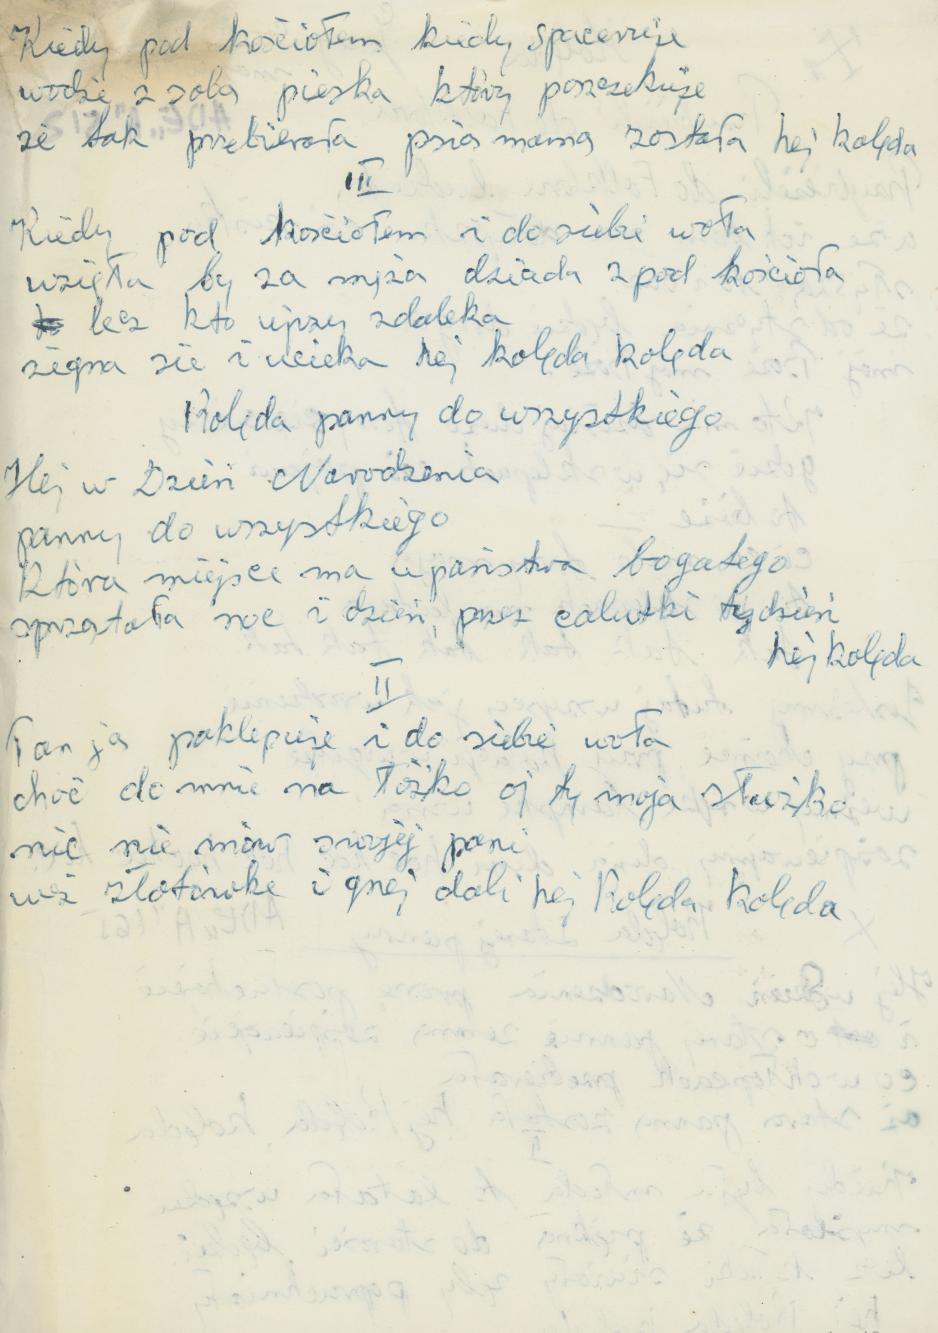 Kiedy pod kościołem kiedy spaceruje
wodzi z sobą pieska który poszczekuje
że tak przebierała psią mamą została hej kolęda
III
Kiedy pod kościołem i do siebie woła
wzięła by za męża dziada z pod kościoła
lecz kto ujrzy zdaleka
żegna sie i ucieka hej kolęda kolęda
Kolęda panny do wszystkiego
Hej w Dzień Narodzenia
panny do wszystkiego
Która miejsce ma u państwa bogatego
sprzątała noc i dzień przez calutki tydzień
hej kolęda
II
Pan ją poklepuje i do siebie woła
choć do mnie na łóżko oj ty moja służko
nic nie mów swojej pani
weź złotówke i gnej dali hej kolęda, kolęda